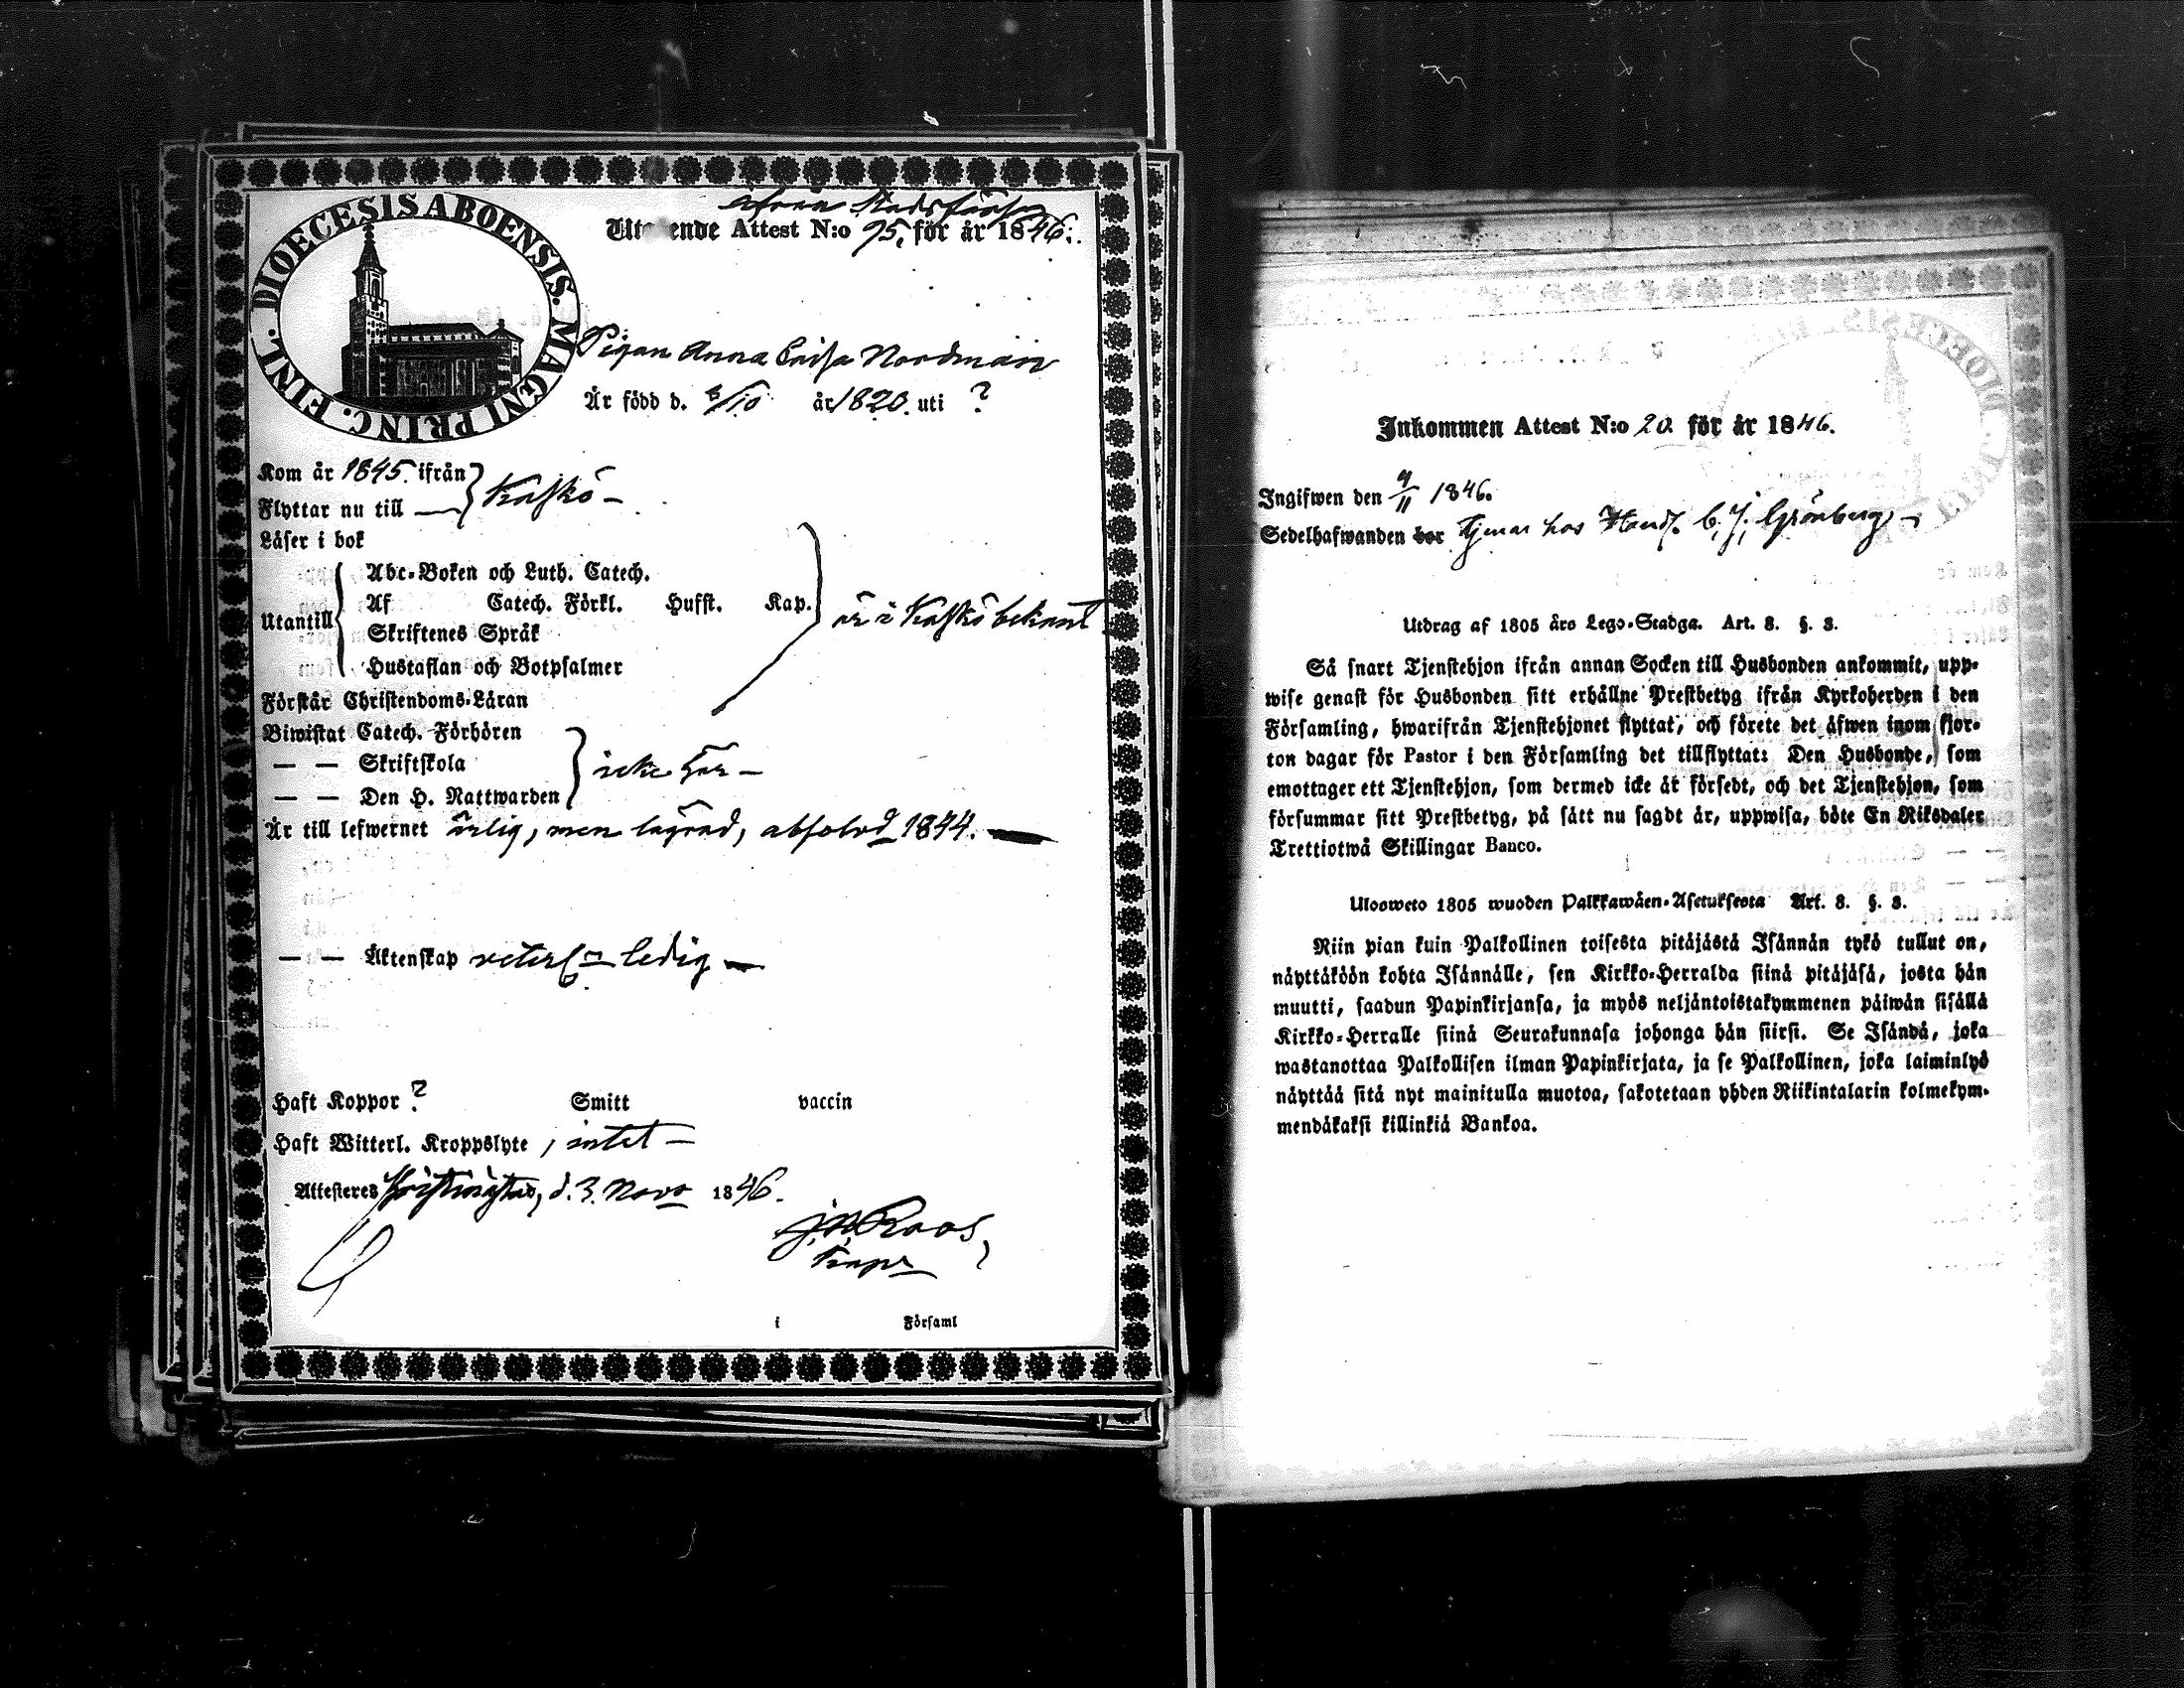 DIOECESIS ABOENSIS. MAGNI PRINC. FINL.
ifrån
Attest N:o 95, för år 1846.
Pigan Anna Caisa Nordman
Är född d. /10 år 1820. uti ?
Kom år 1845. ifrån
Flyttar nu till — } Kaskö –
Läser i bok
Abc-Boken och Luth. Catech.
Utantill Af Catech. Förkl. Husst. Kap. är i Kaskö bekant
Skriftenes Språk
Hustaflan och Botpsalmer
Förstår Christendoms-Läran
Biwistat Catech. Förhören
— — Skriftskola icke här –
— — Den H. Nattwarden
Är till lefwernet ärlig, men lägrad, absolvd 1844. —
— — Äktenskap veterl:n ledig —
Haft Koppor ? Smitt vaccin
Haft Witterl. Kroppslyte, intet –
Attesteres Christinestad, d. 3. Novr 1846.
J.N. Roos,
i Församl
Inkommen Attest N:o 20. för år 1846.
Ingifwen den 9/11 1846.
Sedelhafwanden bor tjenar hos Handl. C. J. Grönberg –
Utdrag af 1805 års Lego-Stadga. Art. 8. §. 3.
Så snart Tjenstehjon ifrån annan Socken till Husbonden ankommit, upp-
wise genast för Husbonden sitt erhållne Prestbetyg ifrån Kyrkoherden i den
Församling, hwarifrån Tjenstehjonet flyttat, och förete det äfwen inom fjor-
ton dagar för Pastor i den Församling det tillflyttat: Den Husbonde, som
emottager ett Tjenstehjon, som dermed icke är försedt, och det Tjenstehjon, som
försummar sitt Prestbetyg, på sätt nu sagdt är, uppwisa, böte En Riksdaler
Trettiotwå Skillingar Banco.
Ulosweto 1805 wuoden Palkkawäen-Asetuksesta Art. 8. §. 3.
Niin pian kuin Palkollinen toisesta pitäjästä Isännän tykö tullut on,
näyttäköön kohta Isännälle, sen Kirkko-Herralda siinä pitäjäsä, josta hän
muutti, saadun Papinkirjansa, ja myös neljäntoistakymmenen päiwän sisällä
Kirkko-Herralle siinä Seurakunnasa johonga hän siirsi. Se Isändä, joka
wastanottaa Palkollisen ilman Papinkirjata, ja se Palkollinen, joka laiminlyö
näyttää sitä nyt mainitulla muotoa, sakotetaan yhden Riikintalarin kolmekym-
mendäkaksi killinkiä Bankoa.